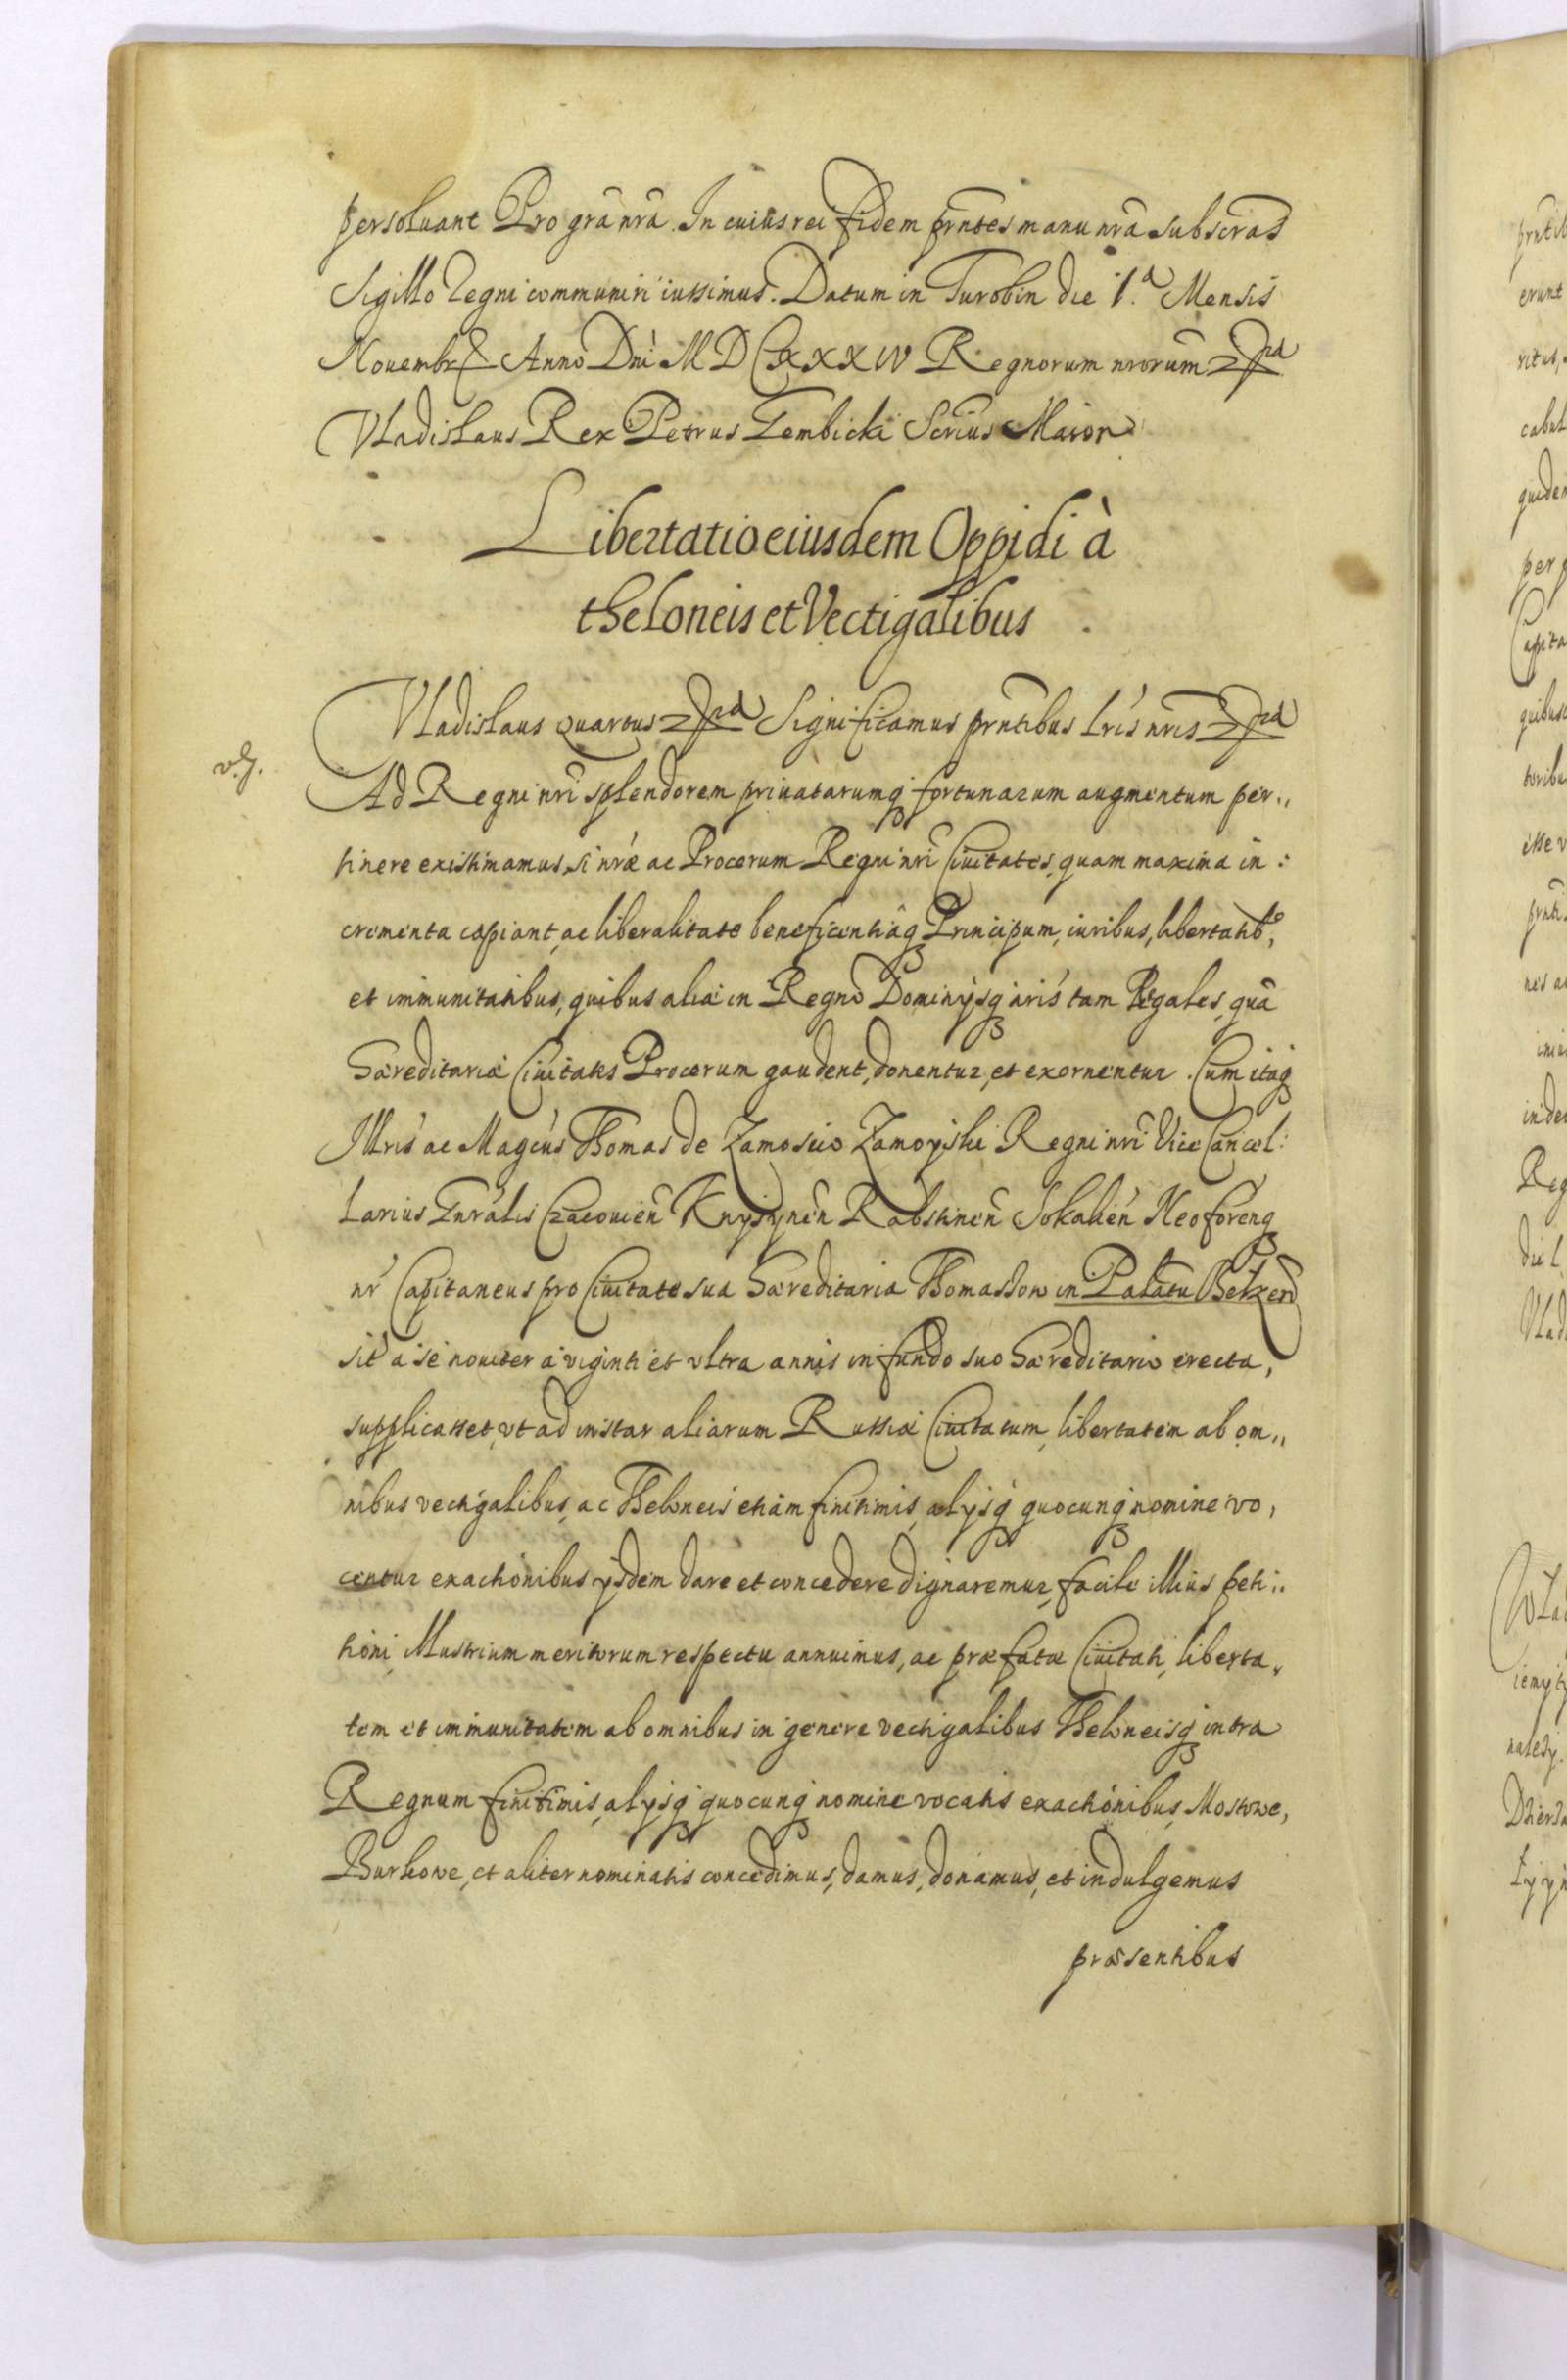 persoluant Pro grã nrã. In cuius rei fidem prntes manu nrã subscras
Sigillo Regni communiri iussimus. Datum in Turobin die 1.a Mensis
Nouembr Anno Dni M D CXXXIV Regnorum nrorum
Vladislaus Rex Petrus Gembicki Scrius Maior
Libertatio eiusdem Oppidi à
theloneis et Vectigalibus
Vladislaus Quartus Significamus prntibus lris nris
Ad Regni nri splendorem priuatarumq fortunarum augmentum per„
tinere existimamus, si nræ ac Procerum Regni nri Ciuitates, quam maxima in:
crementa capiant, ac liberalitate beneficentiâq Principum, iuribus, libertatib9,
et immunitatibus, quibus aliæ in Regno Dominijsq nris tam Regales, quã
Hæreditariæ Ciuitates Procerum gaudent, donentur, et exornentur. Cum itaq
Illris ac Magcus Thomas de Zamoscio Zamoyski Regni nri Vice Cancel:
larius Gnralis Cracouien Knyszynen Rabstinen Sokalien Neoforenq
nr Capitaneus pro Ciuitate sua Hæreditaria Thomaszow in Palatu Belzen
sit a se nouiter a viginti et vltra annis in fundo suo Hæreditario erecta,
supplicasset, vt ad instar aliarum Russiæ Ciuitatum, libertatem ab om„
nibus vectigalibus, ac Theloneis etiam finitimis, alijsq quocunq nomine vo,
centur exactionibus ijsdem dare et concedere dignaremur, facile illius peti„
tioni Illustrium meritorum respectu annuimus, ac præfatæ Ciuitati, liberta„
tem et immunitatem ab omnibus in genere vectigalibus Theloneisq intra
Regnum finitimis, alijsq quocunq nomine vocatis exactionibus, Mostowe,
Burkowe, et aliter nominatis concedimus, damus, donamus, et indulgemus
præsentibus